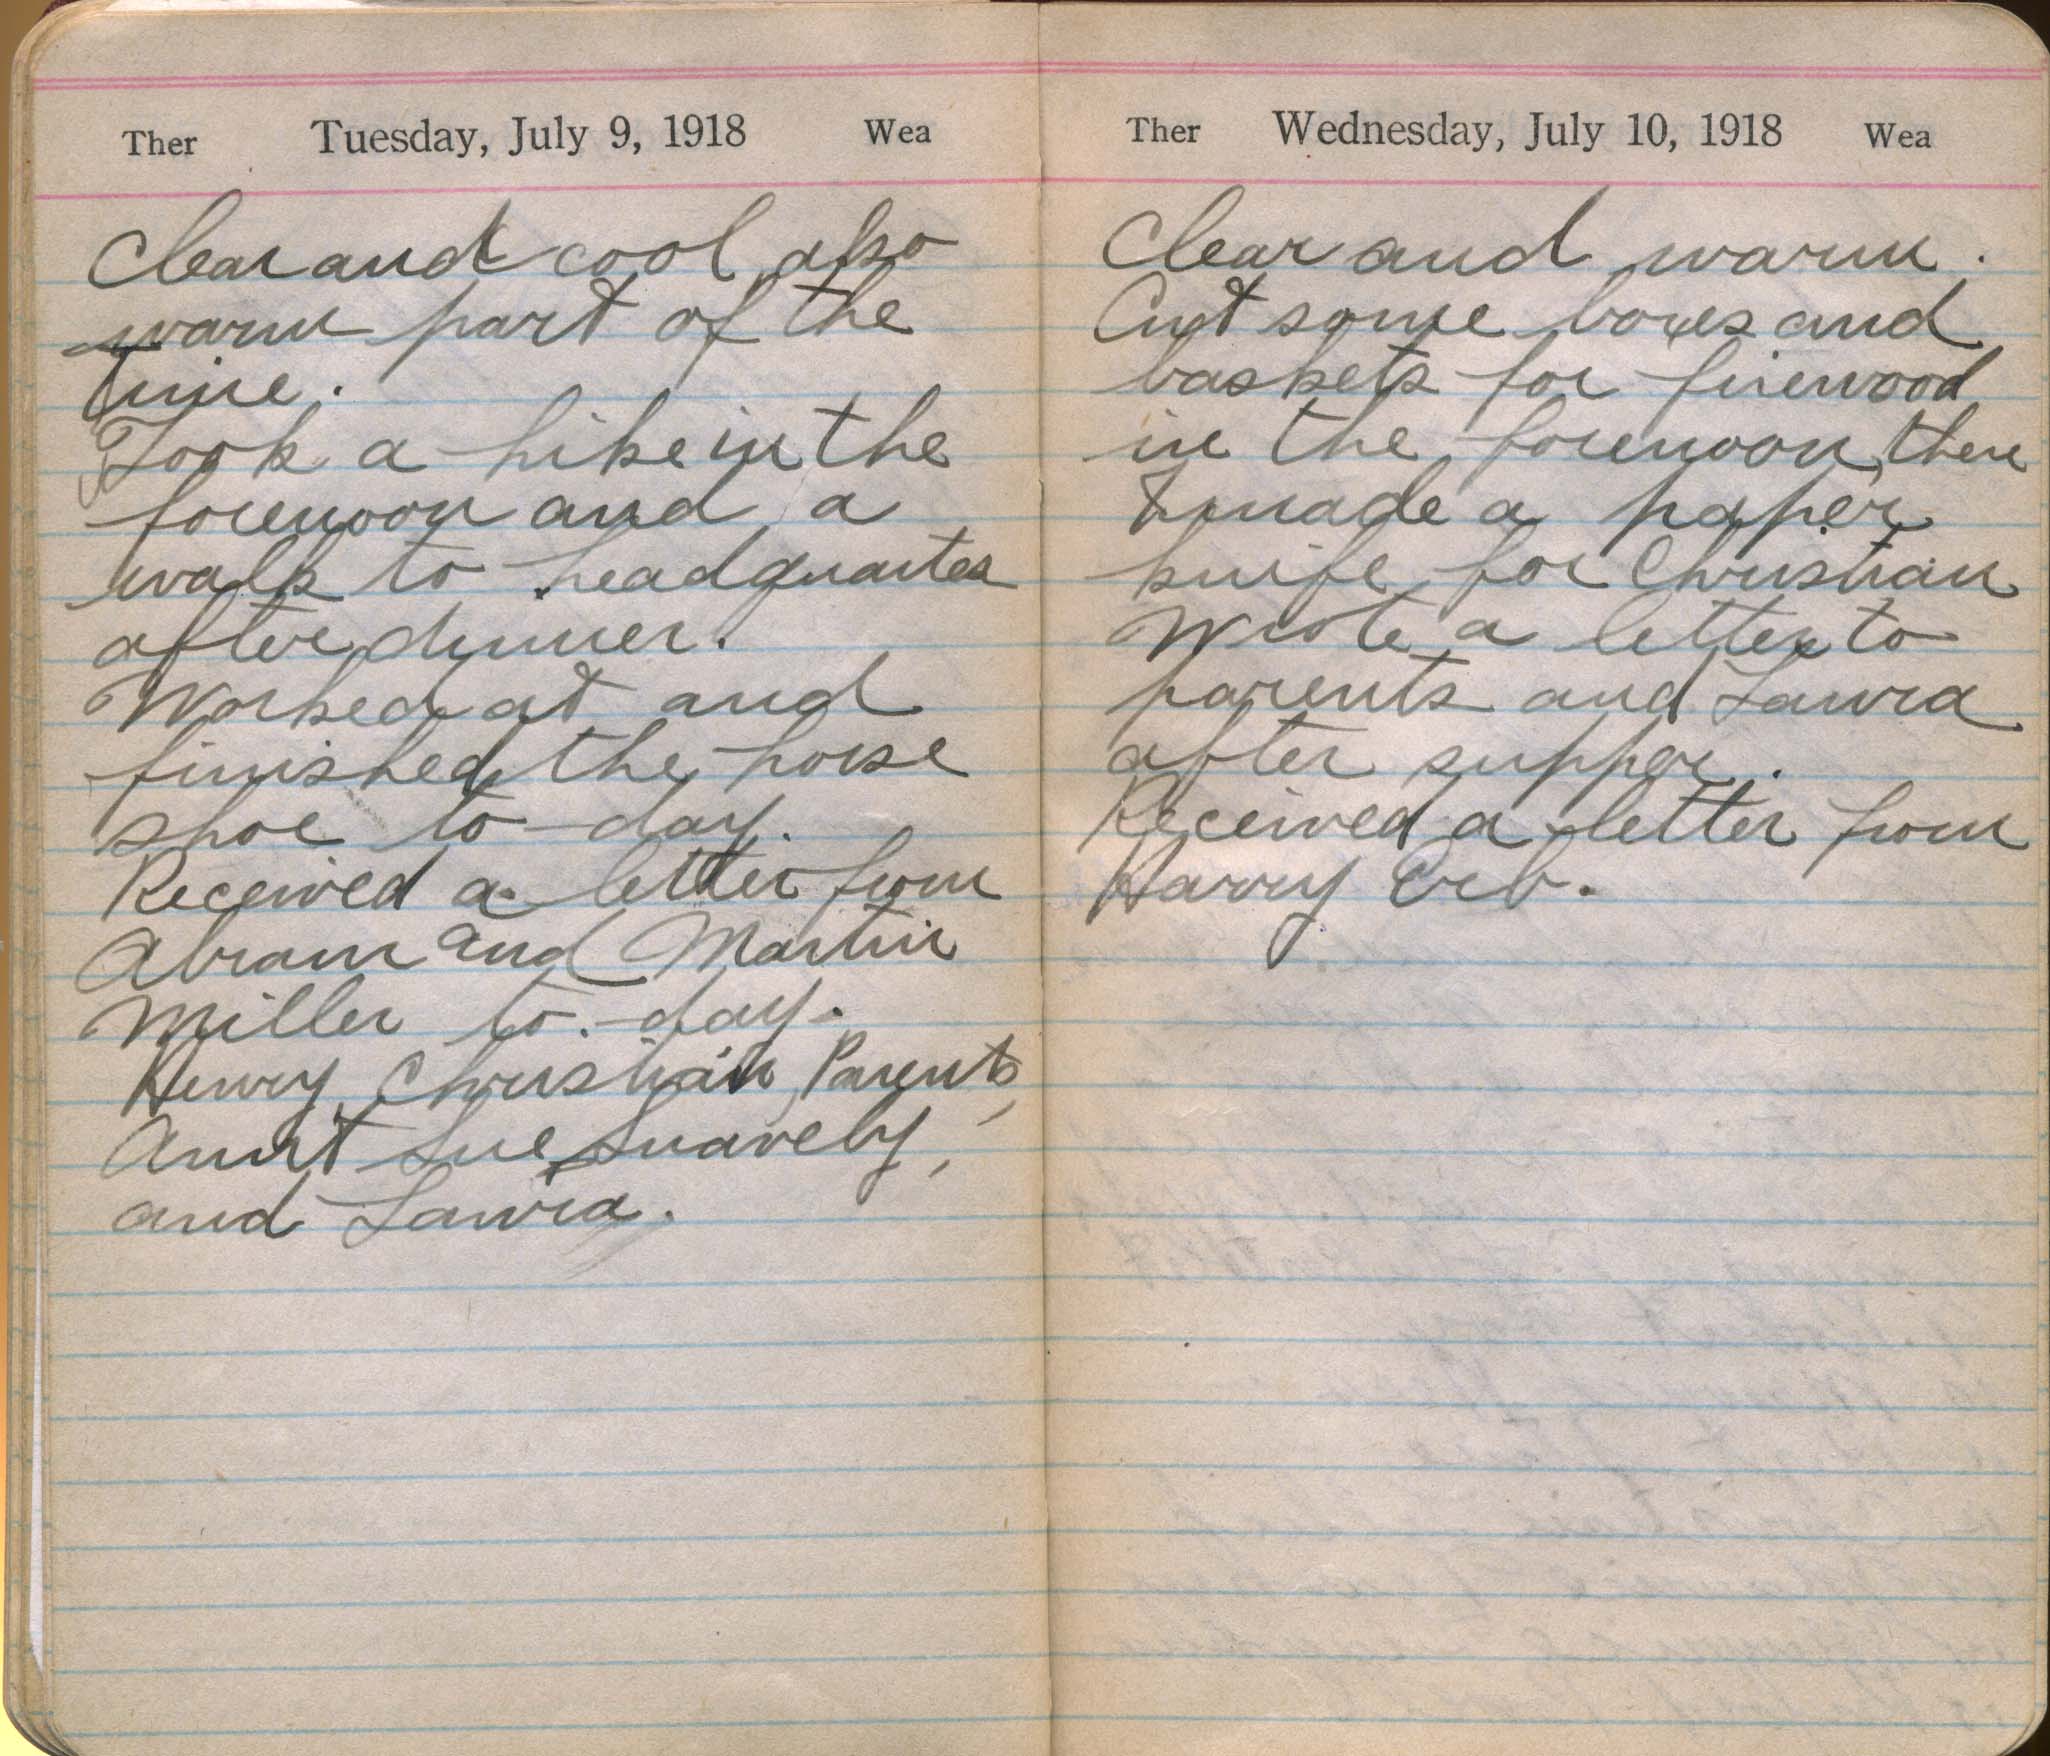 Ther Tuesday, July 9, 1918 Wea
Clear and cool also
warm part of the
time.
Took a hike in the
forenoon and a
walk to headquarters
after dinner.
Worked at and
finished the horse
shoe to-day.
Received a letter from
Abram and Martin
Miller to-day.
Henry, Christian, Parents,
Aunt Sue Snavely,
and Laura.
Ther Wednesday, July 10, 1918 Wea
Clear and warm.
Cut some boxes and
baskets for firewood
in the forenoon, then
I made a paper
knife for Christian
Wrote a letter to
parents and Laura
after supper.
Received a letter from
Harry Erb.